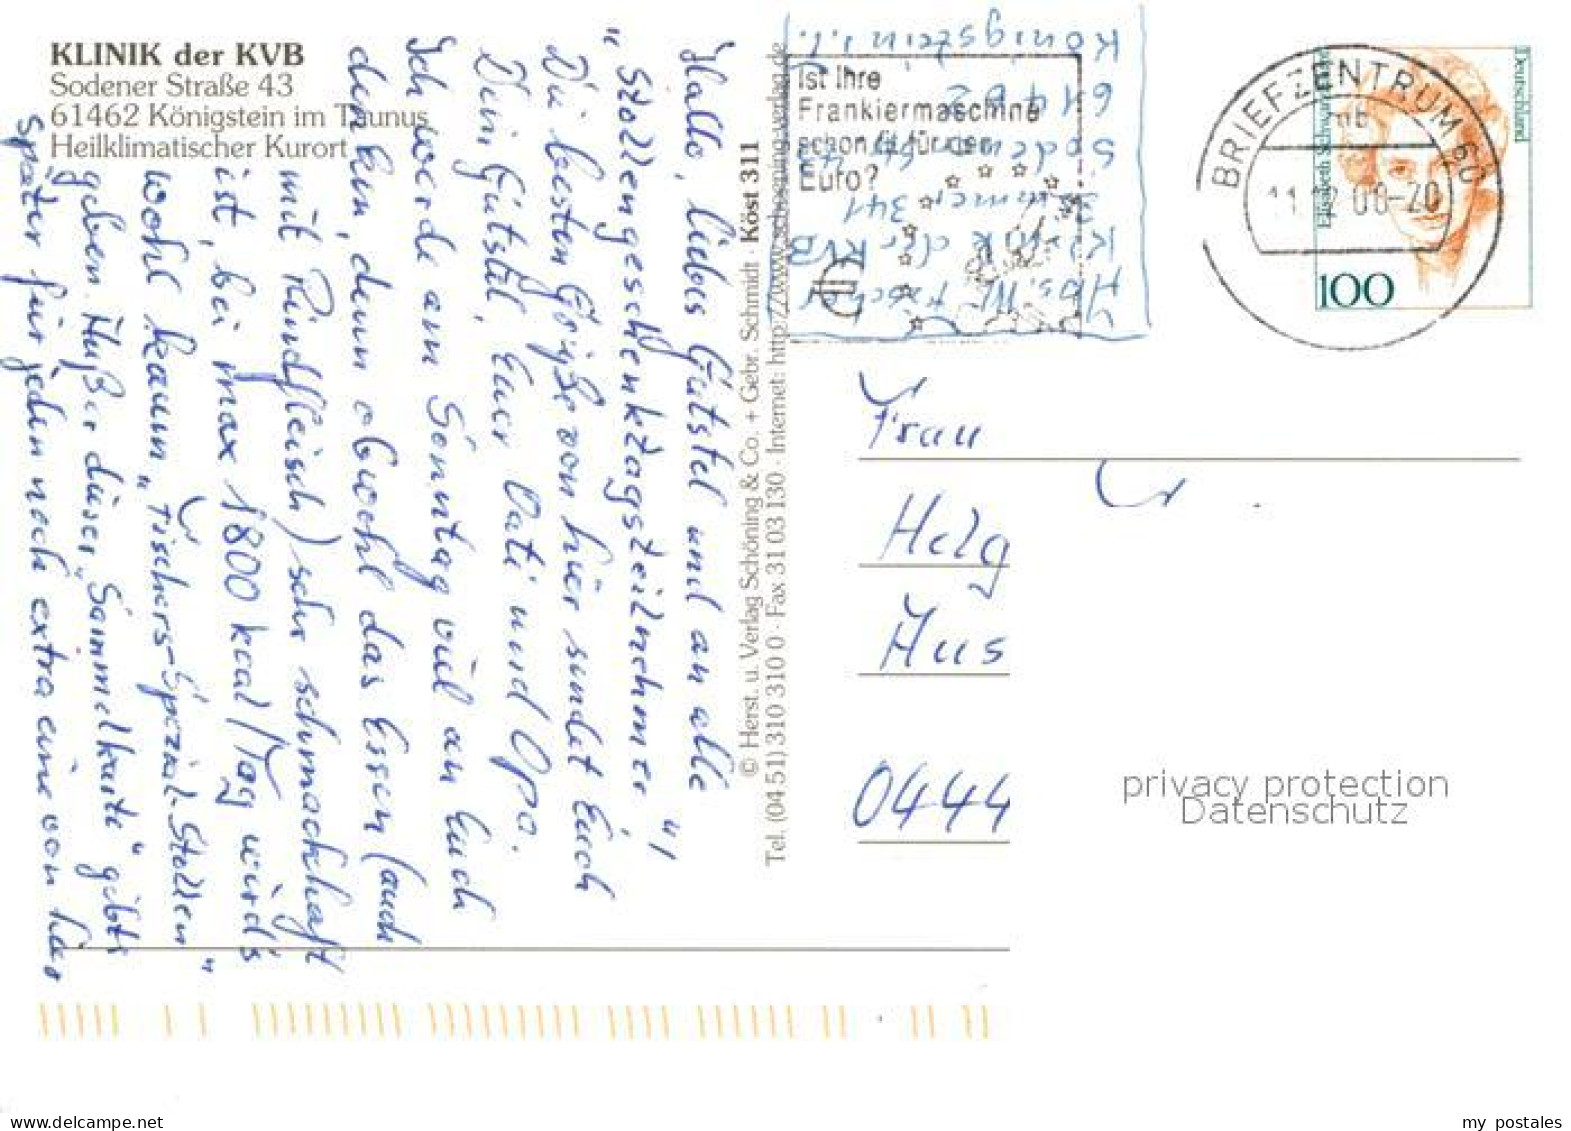 KLINIK der KVB
Sodener Straße 43
61462 Königstein im Taunus
Heilklimatischer Kurort
Hallo, liebes Gütstel und an alle
"Stollengeschenktagsteilnehmer"!
Die besten Grüße von hier sendet Euch
Dein Gütstel, Euer Vati und Opa.
Ich werde am Sonntag viel an Euch
denken, denn obwohl das Essen (auch
mit Rindfleisch) sehr schmackhaft
ist, bei max 1800 kcal/Tag wird's
wohl kaum "Fischers-Spezial-Stollen"
geben. Außer dieser "Sammelkarte" gibt's
später für jeden noch extra eine von hier
© Herst. u. Verlag Schöning & Co. + Gebr. Schmidt · Köst 311
Tel. (04 51) 310 310 0 · Fax 31 03 130 · Internet: http://www.schoening-verlag.de
Abs. W. Fischer
Klinik der KVB
Zimmer 341
Sodener Str. 43
61462
Königstein i. T.
Ist Ihre
Frankiermaschine
schon fit für den
Euro?
BRIEFZENTRUM 60
mb
-20
Deutschland
Elisabeth Schwarzhaupt
100
Frau
Helg
Aus
0444
privacy protection
Datenschutz
my postales